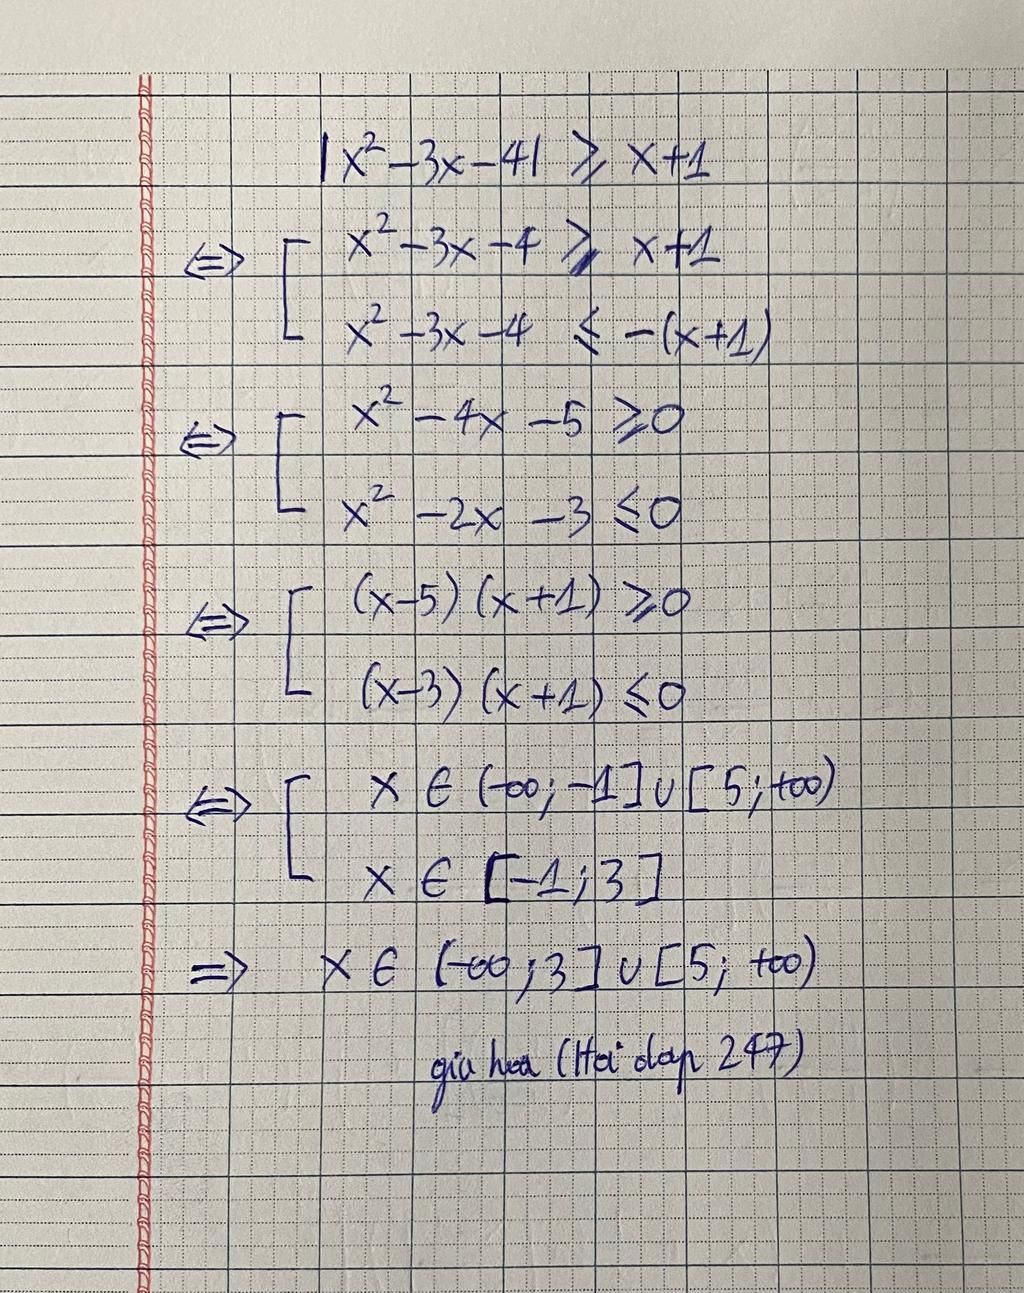 |x² -3x-4| ⩾ x+1
⇔ [ x² -3x -4 ⩾ x+1
x² -3x -4 ⩽ -(x+1)
⇔ [ x² -4x -5 ⩾0
x² -2x -3 ⩽0
⇔ [ (x-5) (x+1) ⩾0
(x-3) (x+1) ⩽0
⇔ [ x ∈ (-∞; -1] ∪ [5; +∞)
x ∈ [-1; 3]
⇒ x ∈ (-∞; 3] ∪ [5; +∞)
(Hoi dap 247)